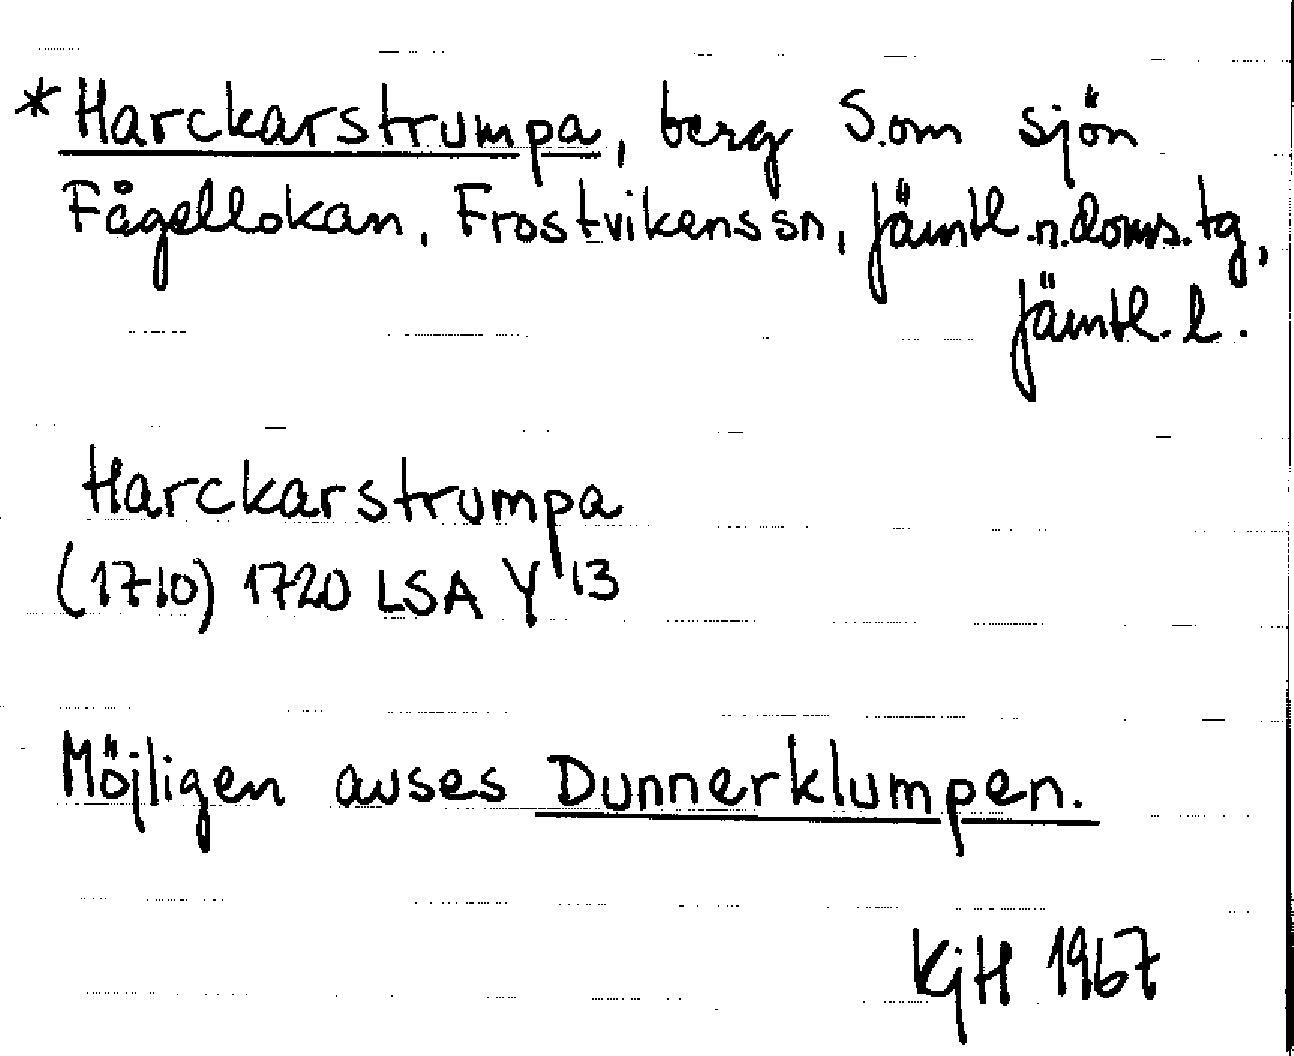 *Harckarstrumpa, berg S.om sjön
Fågellokan, Frostvikens sn, Jämtl.n.doms.tg,
Jämtl.l.
Harckarstrumpa
(1710) 1720 LSA Y 13
Möjligen avses Dunnerklumpen.
KjH 1967